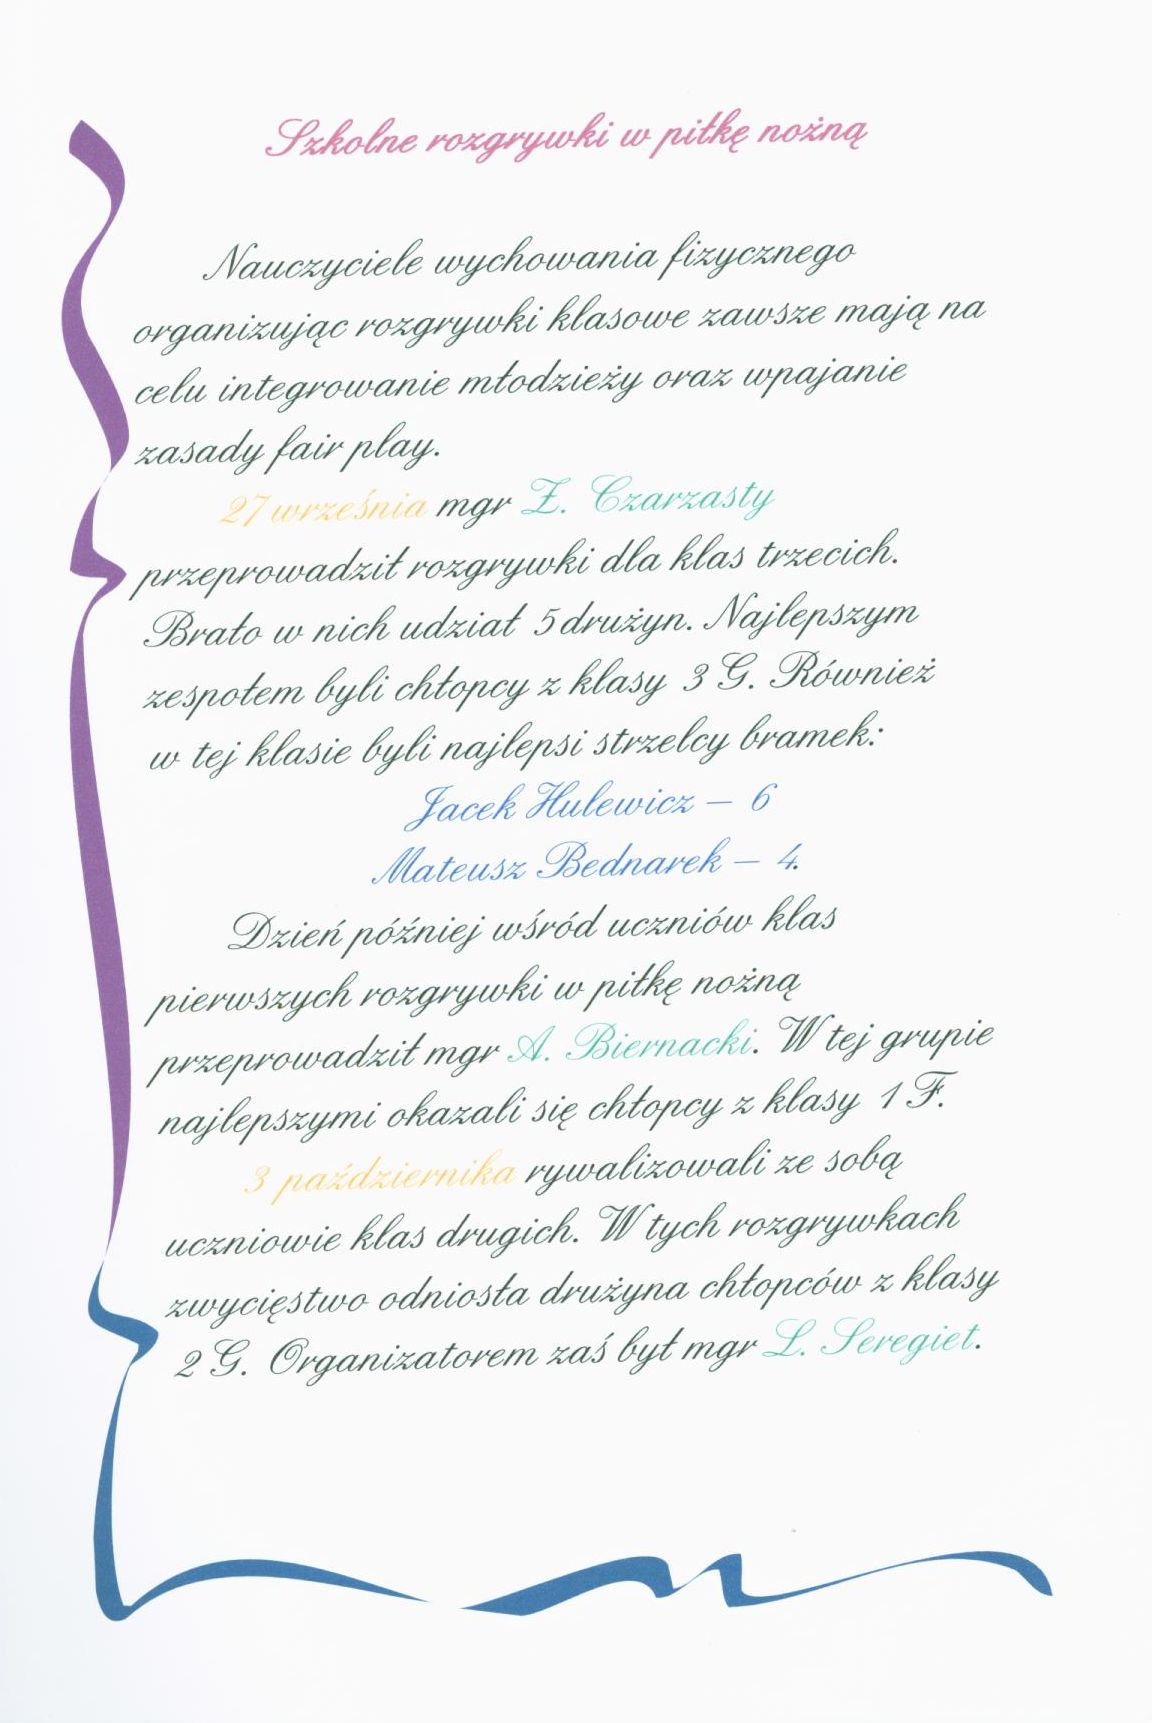 Szkolne rozgrywki w piłkę nożną
Nauczyciele wychowania fizycznego
organizując rozgrywki klasowe zawsze mają na
celu integrowanie młodzieży oraz wpajanie
zasady fair play.
27 września mgr Z. Czarzasty
przeprowadził rozgrywki dla klas trzecich.
Brało w nich udział 5 drużyn. Najlepszym
zespołem byli chłopcy z klasy 3 G. Również
w tej klasie byli najlepsi strzelcy bramek:
Jacek Hulewicz – 6
Mateusz Bednarek – 4.
Dzień później wśród uczniów klas
pierwszych rozgrywki w piłkę nożną
przeprowadził mgr A. Biernacki. W tej grupie
najlepszymi okazali się chłopcy z klasy 1 F.
3 października rywalizowali ze sobą
uczniowie klas drugich. W tych rozgrywkach
zwycięstwo odniosła drużyna chłopców z klasy
2 G. Organizatorem zaś był mgr L. Seregiet.